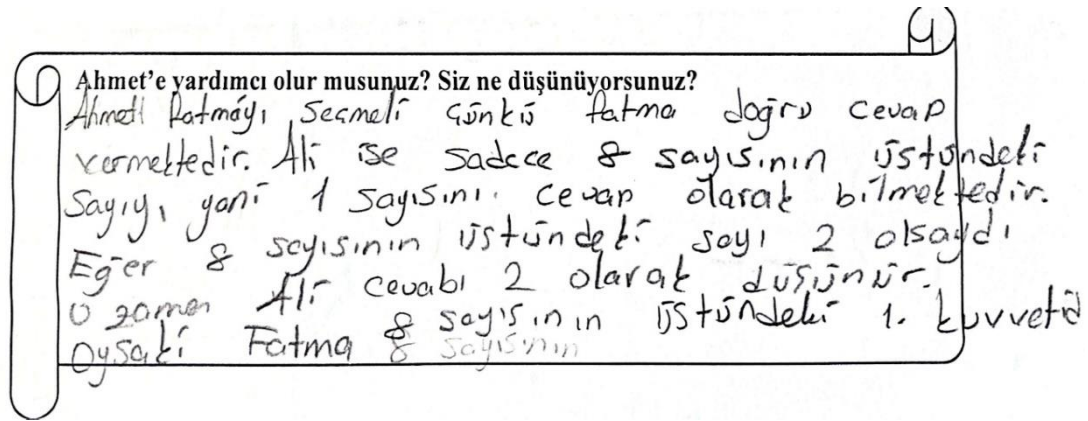 Ahmet'e yardımcı olur musunuz? Siz ne düşünüyorsunuz?
Ahmet Fatmayı seçmeli çünkü fatma doğru cevap
vermektedir. Ali ise sadece 8 sayısının üstündeki
sayıyı yani 1 sayısını cevap olarak bilmektedir.
Eğer 8 sayısının üstündeki sayı 2 olsaydı
O zaman Ali cevabı 2 olarak düşünür.
Oysaki Fatma 8 sayısının üstündeki 1. kuvvetid
sayısının